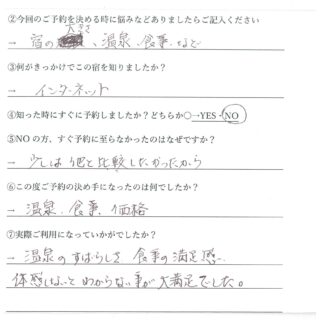 ②今回のご予約を決める時に悩みなどありましたらご記入ください
→ 宿の大きさ、温泉、食事、など
③何がきっかけでこの宿を知りましたか？
→ インターネット
④知った時にすぐに予約しましたか？どちらか○→YES・NO
⑤NOの方、すぐ予約に至らなかったのはなぜですか？
→ 少しは他と比較したかったから
⑥この度ご予約の決め手になったのは何でしたか？
→ 温泉、食事、価格
⑦実際ご利用になっていかがでしたか？
→ 温泉のすばらしさ 食事の満足感、
体感しないとわからない事が大満足でした。